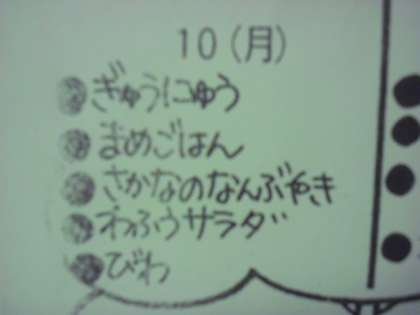 10(月)
ぎゅうにゅう
まめごはん
さかなのなんぶやき
わふうサラダ
びわ